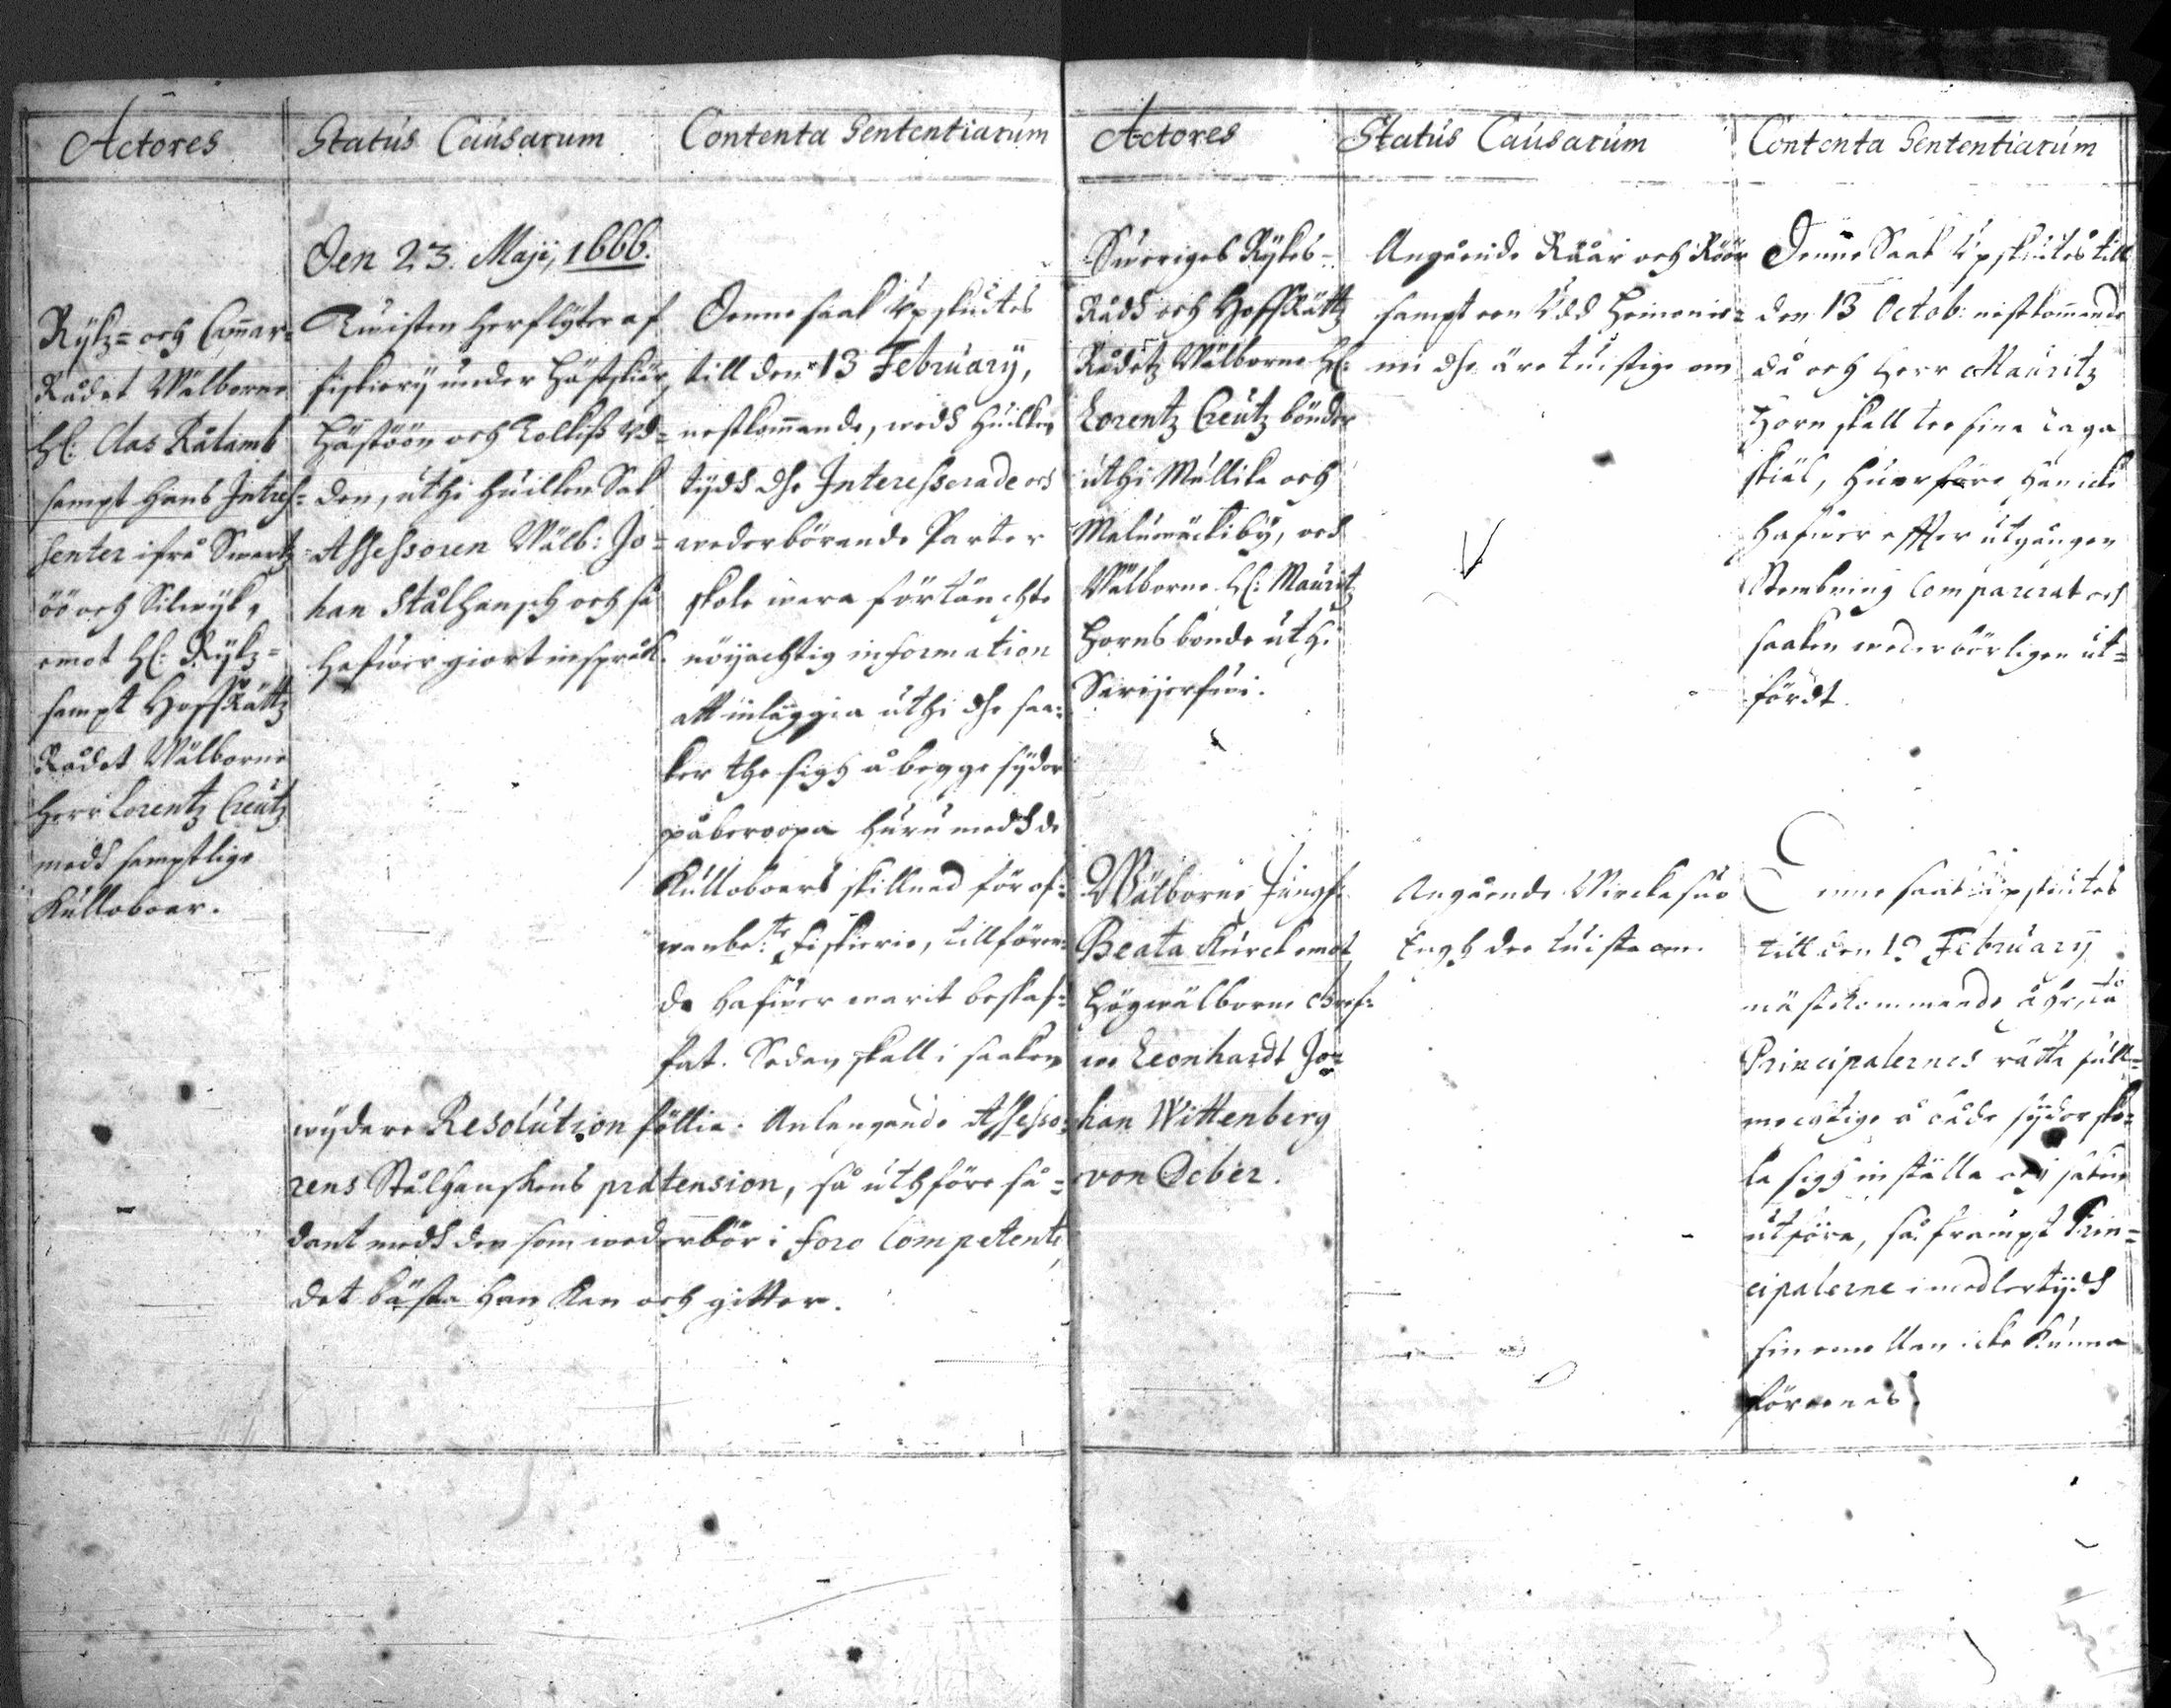 Actores
Status Causarum
Contenta Sententiarum
Den 23. Maji, 1666.
Rÿkz= och Cammar=
Rådet Wälborne
H: Clas Rålamb
sampt hans Intres=
senter ifrå Swartz
öö och Silwÿk,
emot H: Rÿkz=
sampt HoffRättz
Rådet Wälborne
Herr Lorentz Creutz
medh samptlige
Kulloboer.
Twisten herflÿter af
fiskierÿ under Hästskiär,
Hästöön och Kolkiss Vd=
den, uthi huilken Sak
Assessoren Wälb: Jo=
han Stålhansch och så
hafwer giort inspråk.
Denne saak Vpskiutes
till den 13 February,
nestkommande, medh huilken
tÿdh dhe Interesserade och
wederbörande Parter
skole wara förtänchte
nöÿachtig information
att inläggia uthi dhe saa=
ker the sigh å begge sÿdor
påberoopa huru medh de
Kulloboers skillnad för of=
wanbe:te fiskierie, tillfören=
de hafwer warit beskaf=
fat. Sedan skall i saaken
wÿdare Resolution föllia. Anlangande Assesso=
rens Stålhanskens prætension, så uthföre så=
dant medh den som wederbör i foro Competente,
det bästa han kan och gitter.
Actores
Status Causarum
Contenta Sententiarum
Sweriges Rÿkes=
Rådh och HoffRättz
Rådetz Wälborne H:
Lorentz Creutz bönder
uthi Mullila och
Malumäckibÿ, och
Wälborne H: Mauritz
Horns bonde uthi
Sarijerfwi.
Angående Råår och Röör
sampt een Udd Heinenie=
mi dhe äre twistige om
Denne Saak Vpskiutes till
den 13 Octob: nestkommande
då och Herr Mauritz
Horn skall tee sina laga
skiäl, huarföre han icke
hafwer effter utgången
Stembning Comparerat och
saaken wederbörligen ut=
fördt.
Wälborne Jungf:
Beata Kurck emot
Högwälborne Gref=
we Leonhardt Jo=
han Wittenberg
von Deber.
Angående
Engh dee twista om.
Denne saak Upskiutes
till den 13 February
nästkommande åhr, då
Principalernes rätta full=
mechtige å både sÿdor sko=
la sigh inställa och saken
utföra, så frampt Prin=
cipalerne imedlertÿdh
sin emellan icke kunna
föreenas.